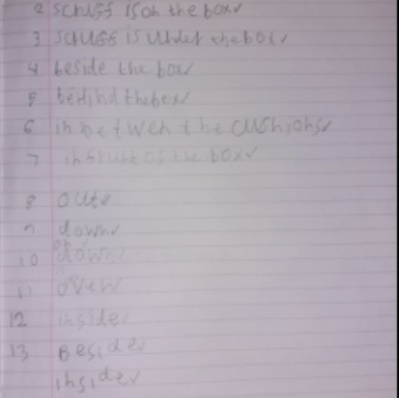 2 scruff is on the box
3 scruff is under the box
4 beside the box
5 behind the box
6 in betweh the cushions
7 in frunt of the box
8 out
9 down
10 down
11 over
12 inside
13 Beside
inside